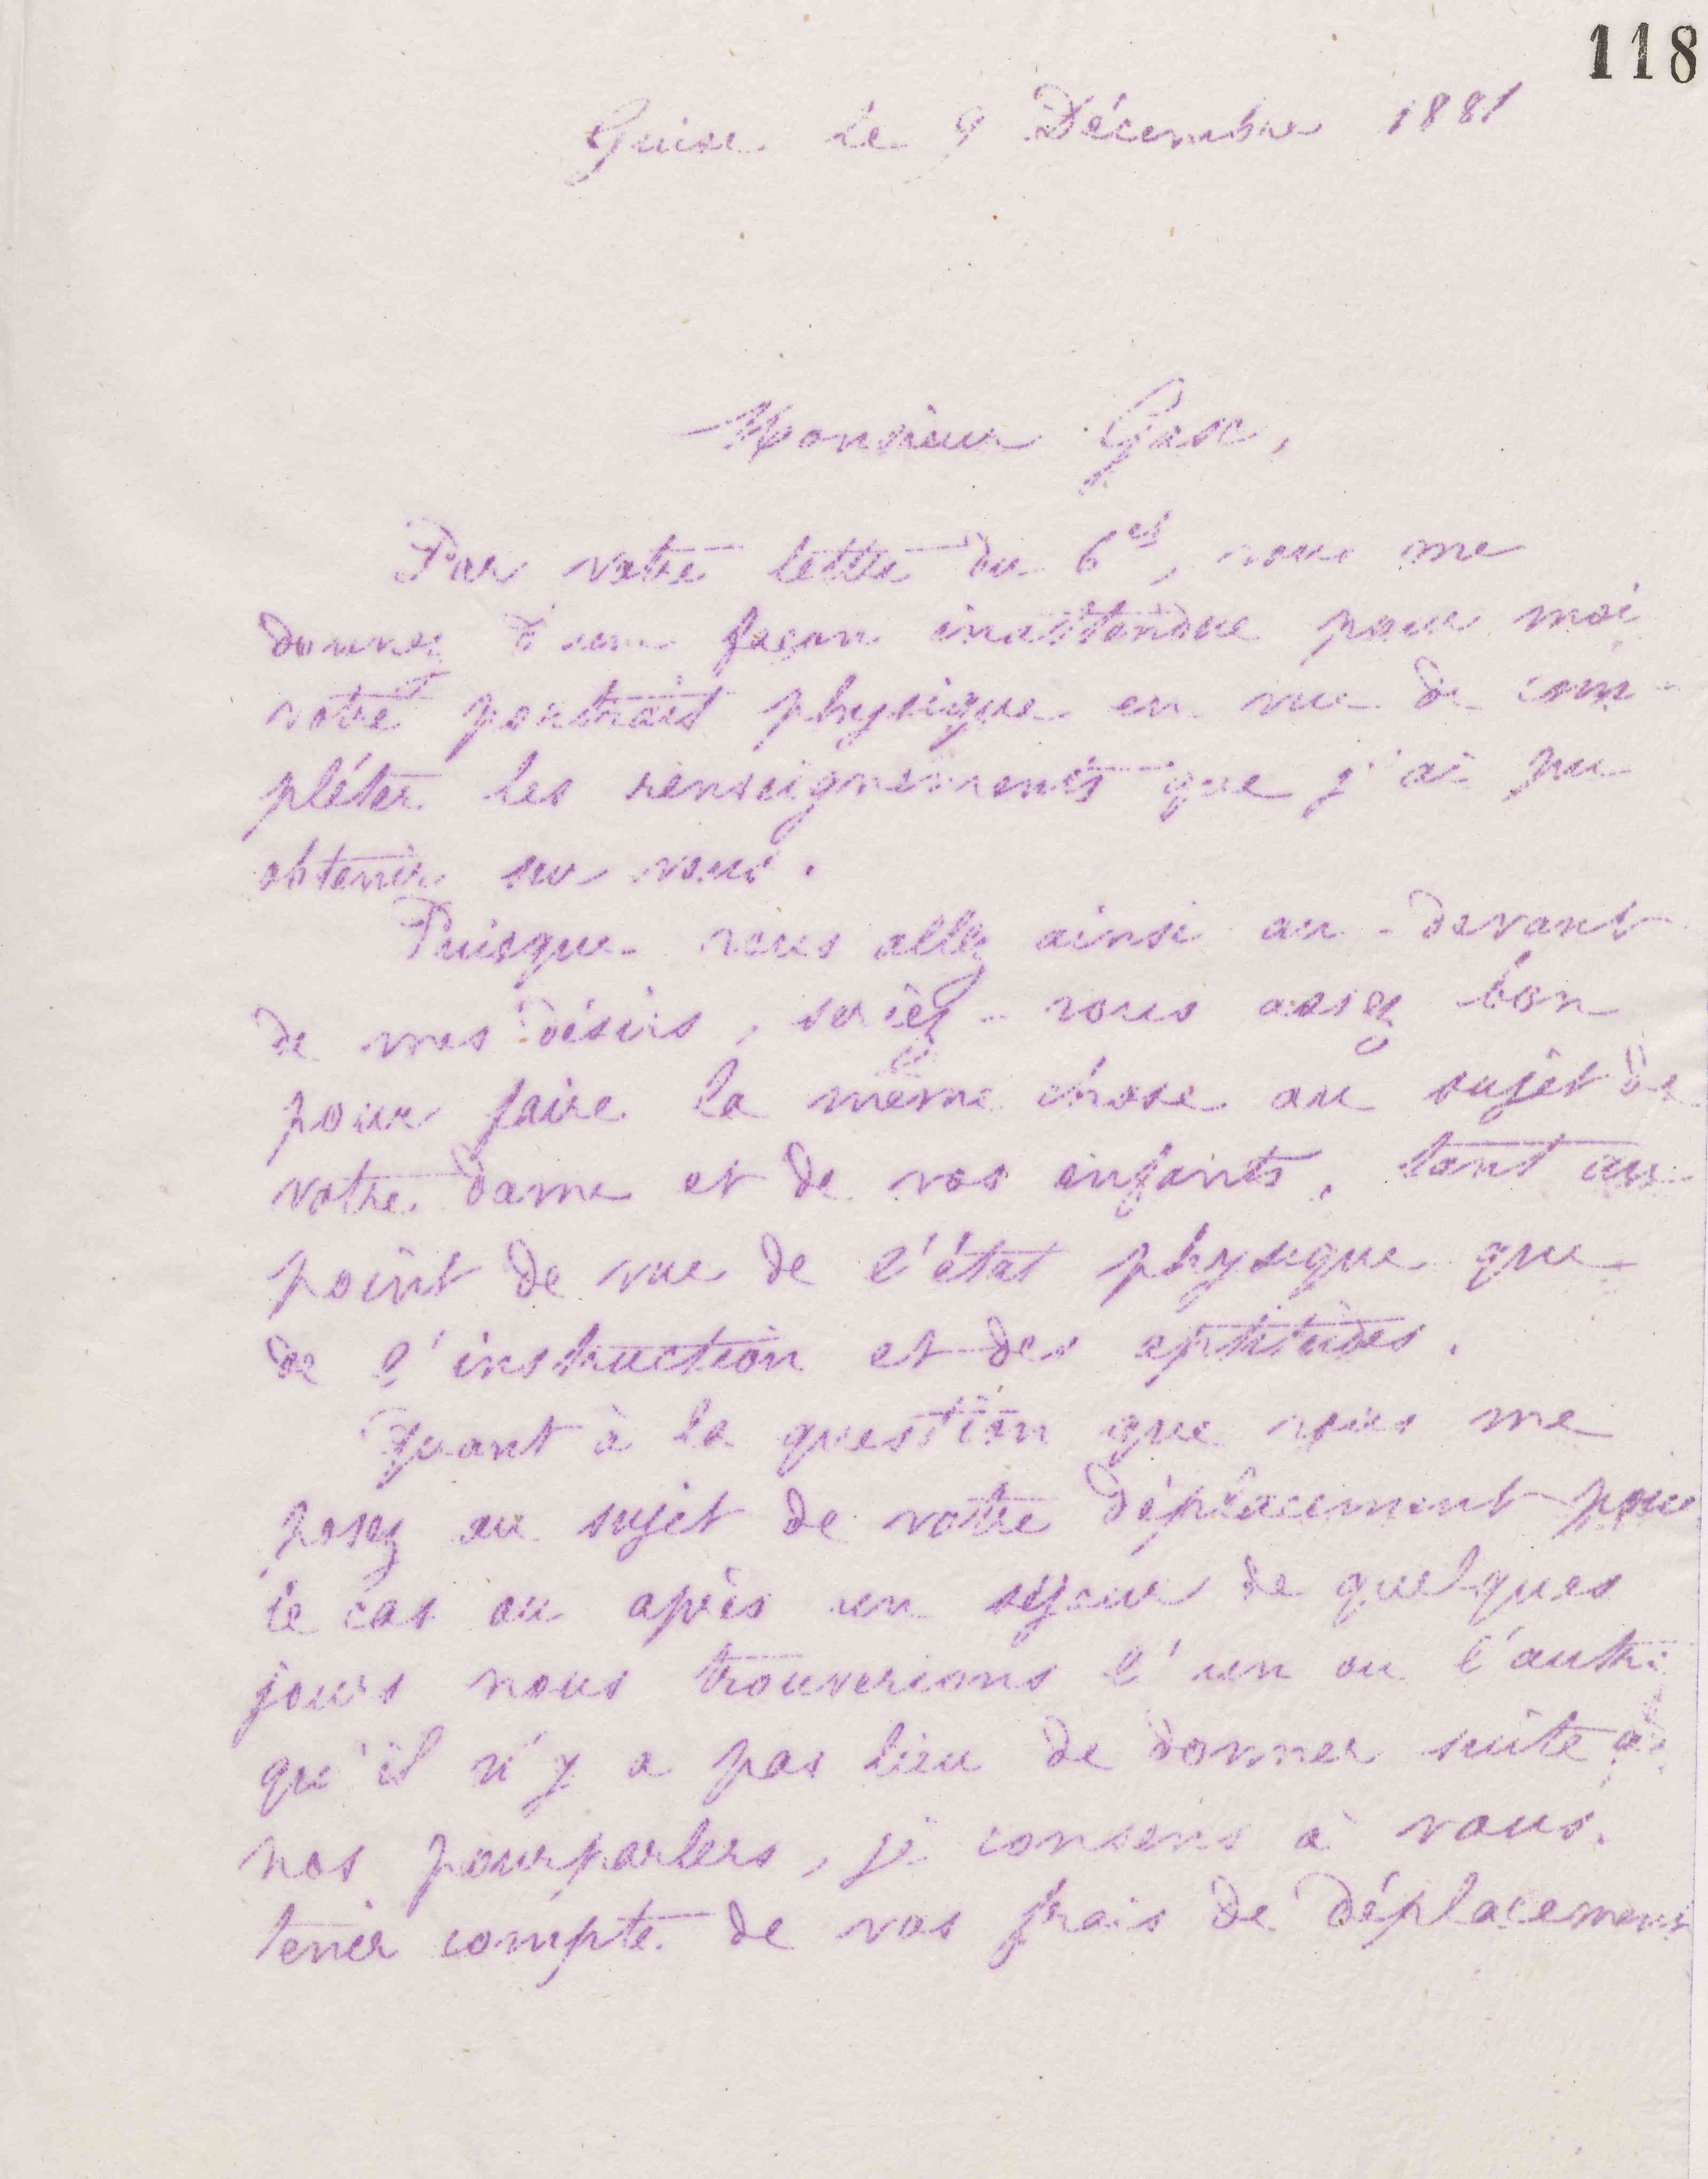 118
Guise le 9 Décembre 1881
Monsieur Gasc,
Par votre lettre du 6 ct, vous me
donnez d'une façon inattendue pour moi
votre portrait physique en vue de com-
pléter les renseignements que j'ai pu
obtenir sur vous.
Puisque vous allez ainsi au-devant
de mes désirs, seriez-vous assez bon
pour faire la même chose au sujet de
votre dame et de vos enfants, tant au
point de vue de l'état physique que
de l'instruction et des aptitudes.
Quant à la question que vous me
posez au sujet de votre déplacement pour
le cas ou après un séjour de quelques
jours nous trouverions l'un ou l'autre
qu'il n'y a pas lieu de donner suite à
nos pourparlers, je consens à vous
tenir compte de vos frais de déplacement